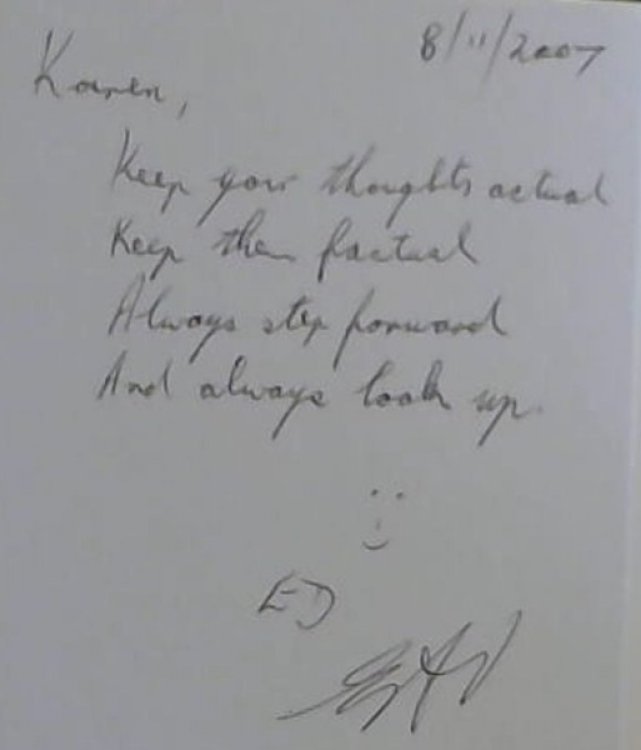 8/11/2007
Karen,
Keep your thoughts actual
Keep them factual
Always step forward
And always look up.
ED